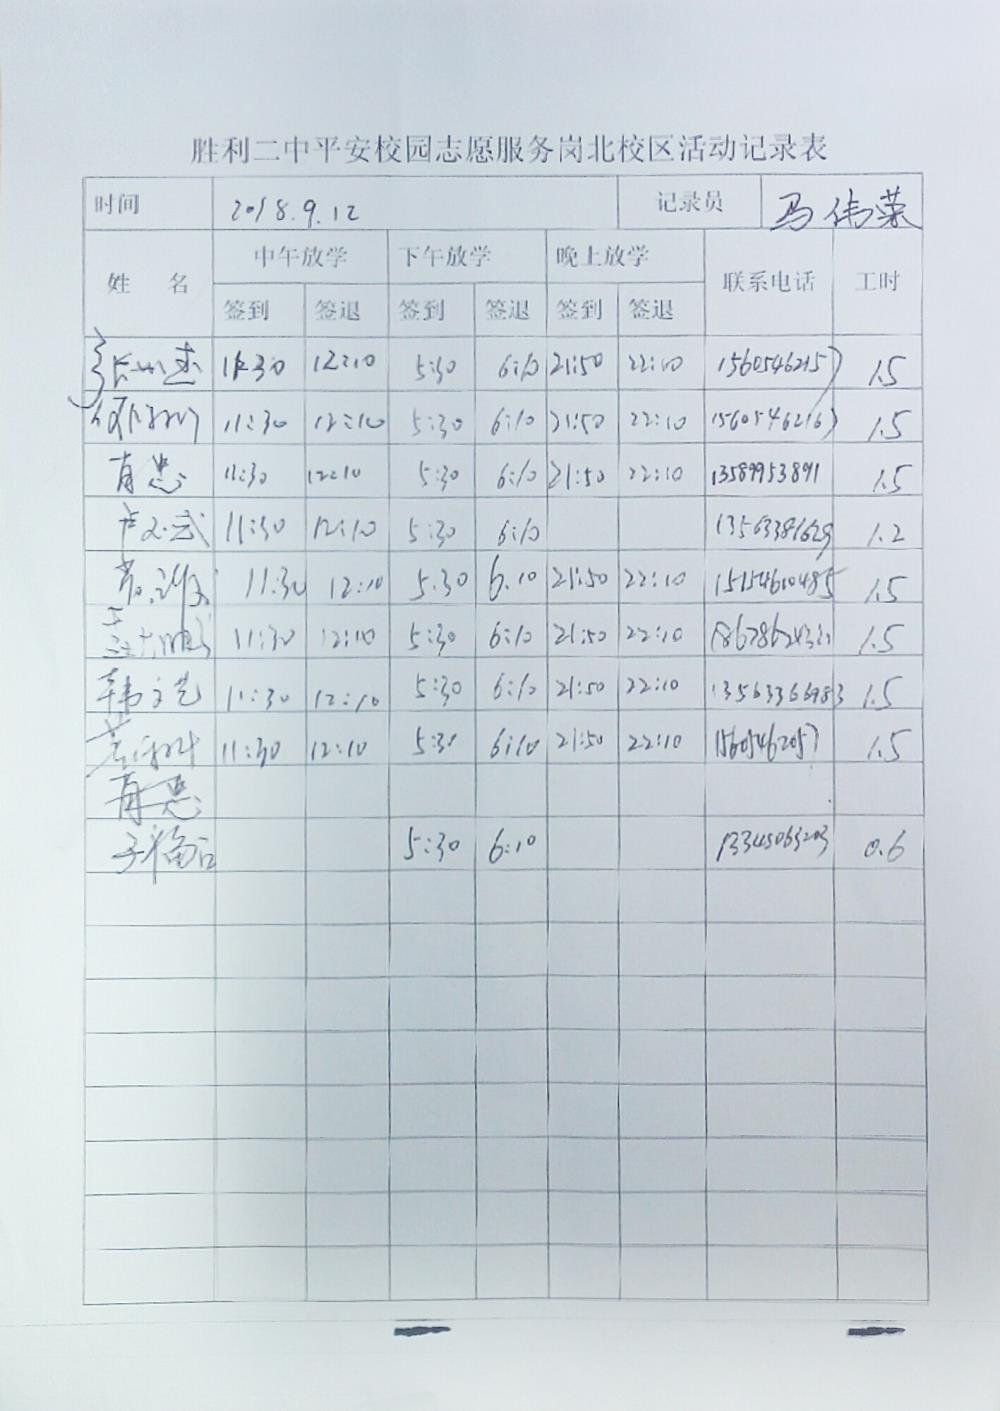 胜利二中平安校园志愿服务岗北校区活动记录表
时间 2018.9.12 记录员 马伟荣
姓 名 中午放学 下午放学 晚上放学 联系电话 工时
签到 签退 签到 签退 签到 签退
11:30 12:10 5:30 6:10 21:50 22:10 1.5
11:30 12:10 5:30 6:10 21:50 22:10 1.5
11:30 12:10 5:30 6:10 21:50 22:10 13589953891 1.5
11:30 12:10 5:30 6:10 13563381629 1.2
11:30 12:10 5:30 6.10 21:50 22:10 15154610485 1.5
11:30 12:10 5:30 6:10 21:50 22:10 1.5
韩文艺 11:30 12:10 5:30 6:10 21:50 22:10 13563366983 1.5
11:30 12:10 5:30 6:10 21:50 22:10 15605462057 1.5
5:30 6:10 13345063203 0.6